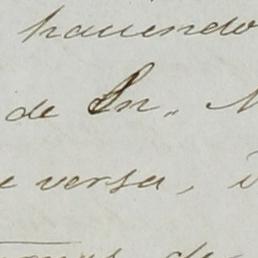 havendo
de Sn. M
e versa, i
de